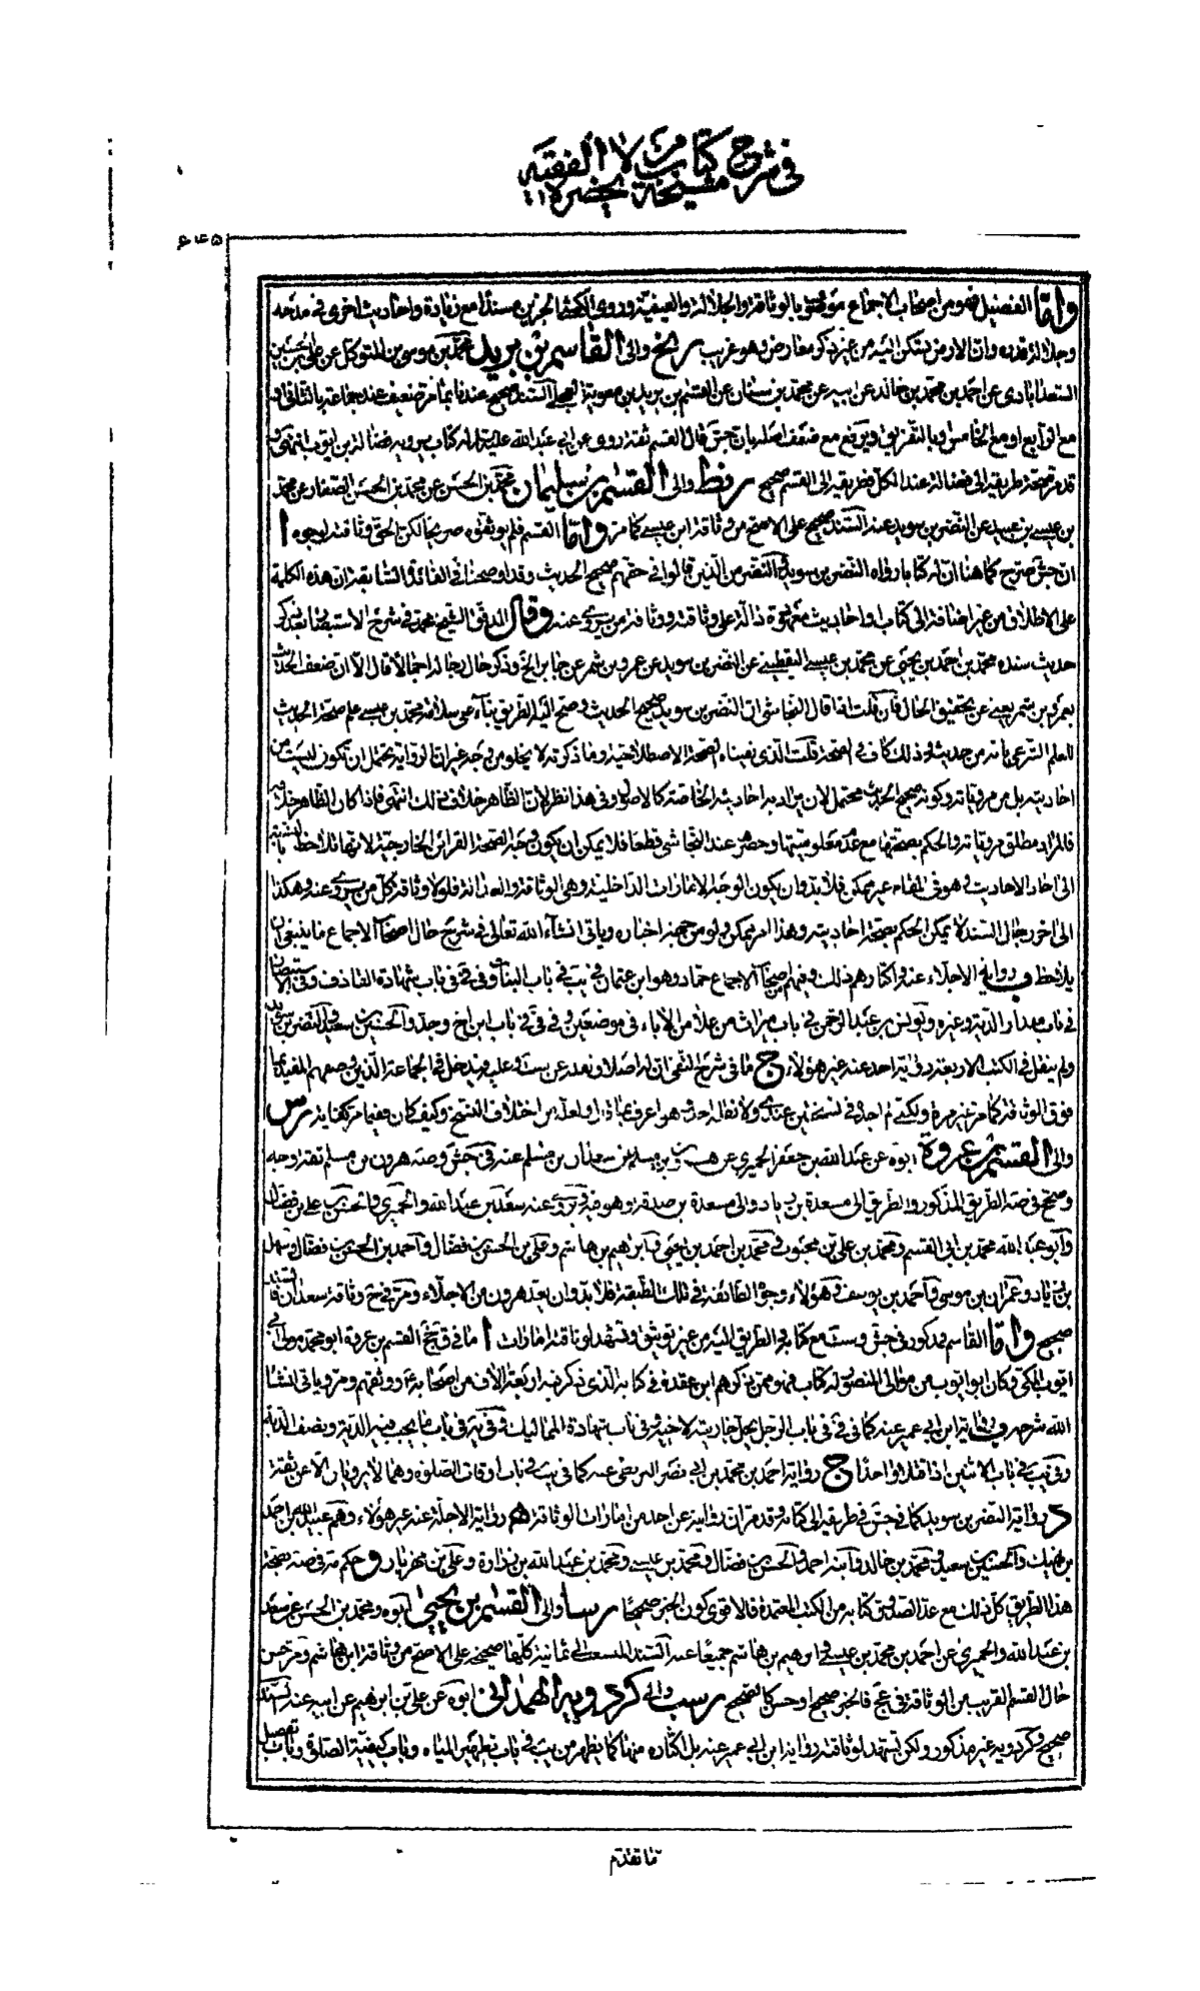 في شرح كتاب من لا الفقيه
مشيخة يحضره
٦٤٥
واما الفضيل فهو من اصحاب الاجماع موصوف بالوثاقة والجلالة والعينية وروى الكشي الخبرين مسندا مع زيادة واحاديث اخرى في مدحه
وجلالة قدره وان الارض لتسكن اليه من غير ذكر معارض وهو غريب رنح والى القاسم بن بريد محمد بن موسى بن المتوكل عن علي بن الحسين
السعدابادي عن احمد بن محمد بن خالد عن ابيه عن محمد بن سنان عن القسم بن بريد بن معوية العجلي السند صحيح عندنا بما مر ضعيف عند جماعة بالثاني او
مع الرابع او مع الخامس وبالتفريق ويرتفع مع ضعف اصله بان جش قال القسم ثقة روى عن ابي عبد الله عليه السلام له كتاب يرويه فضالة بن ايوب انتهى و
قد مر صحة طريقه الى فضالة عند الكل فطريقه الى القسم صحيح رنط والى القسم بن سليمان محمد بن الحسن عن محمد بن الحسن الصفار عن محمد
بن عيسى بن عبيد عن النضر بن سويد عنه السند صحيح على الاصح من وثاقة ابن عيسى كما مر واما القسم فلم يوثقوه صريحا لكن الحق وثاقته لوجوه ا
ان جش صرح كما هنا ان له كتابا رواه النضر بن سويد والنضر من الذين قالوا في حقهم صحيح الحديث وقد اوضحنا في الفائدة السابقة ان هذه الكلمة
على الاطلاق من غير اضافة الى كتاب او احاديث معهودة دالة على وثاقته ووثاقة من يروي عنه وقال المدقق الشيخ محمد في شرح الاستبصار بعد ذكر
حديث سنده محمد بن احمد بن يحيى عن محمد بن عيسى اليقطيني عن النضر بن سويد عن عمرو بن شمر عن جابر الخ وذكر حال رجاله اجمالا قال الا ان ضعف الحديث
بعمرو بن شمر يغني عن تحقيق الحال فان قلت اذا قال النجاشي ان النضر بن سويد صحيح الحديث وصح اليه الطريق بناء على سلامة محمد بن عيسى علم صحة الحديث
للعلم الشرعي بانه من حديثه وذلك كاف في الصحة قلت الذي نعبناه الصحة الاصطلاحية وما ذكرته لا يخلو من وجه غير ان الرواية يحتمل ان تكون ليست من
احاديثه بل من مروياته وكونه صحيح الحديث محتمل لان يراد به احاديثه الخاصة كالاصول وفي هذا نظر لان الظاهر خلاف ذلك انتهى فاذا كان الظاهر خلافه
فالمراد مطلق مروياته والحكم بصحتها مع عدم معلوميتها وحصرها عند النجاشي قطعا فلا يمكن ان يكون وجه الصحة القرائن الخارجية لانها تلاحظ بالنسبة
الى احاد الاحاديث وهو في المقام غير ممكن فلا بد وان يكون الوجه الامارات الداخلية وهي الوثاقة والعدالة فلولا وثاقة كل من يروي عنه وهكذا
الى اخر رجال السند لا يمكن الحكم بصحة احاديثه وهذا امر ممكن ولو من جهة اخباره وياتي انشاء الله تعالى في شرح حال اصحاب الاجماع ما ينبغي ان
يلاحظ ب رواية الاجلاء عنه واكثارهم ذلك وفيهم من اصحاب الاجماع حماد وهو ابن عثمان في يب في باب البينات وفي في في باب شهادة القاذف وفي الاستبصار
في باب مقدار الدية وغيره ويونس بن عبد الرحمن في باب ميراث من علا من الاباء في موضعين وفي في في باب ابن اخ وجد والحسين بن سعيد والنضر بن سويد
ولم ينقل في الكتب الاربعة رواية احد عنه غير هؤلاء ج ما في شرح التقي ان له اصلا ونقد عن ست وعليه فيدخل في الجماعة الذين وصفهم المفيد بما
فوق الوثاقة كما مر غير مرة ولكني لم اجده في نسختين عندي ولا نقله احد وهو اعرف بما قال ولعله من اختلاف النسخ وكيف كان ففيما مر كفاية رس
والى القسم بن عروة ابوه عن عبد الله بن جعفر الحميري عن هرون بن مسلم عن سعدان بن مسلم عنه في جش وصه هرون بن مسلم ثقة وجه
وصحح في صه الطريق المذكور والطريق الى مسعدة بن زياد والى مسعدة بن صدقة وهو فيه ويروي عنه سعد بن عبد الله والحميري والحسن بن علي بن فضال
وابو عبد الله محمد بن ابي القسم ومحمد بن علي بن محبوب ومحمد بن احمد بن يحيى وابراهيم بن هاشم وعلي بن الحسن بن فضال واحمد بن الحسن بن فضال وسهل
بن زياد وعمران بن موسى واحمد بن يوسف وهؤلاء وجوه الطائفة في تلك الطبقة فلا بد وان يعد هرون من الاجلاء ومر في نخ وثاقة سعدان فالسند
صحيح واما القاسم مذكور في جش وست مع كتابه والطريق اليه من غير توثيق وتشهد لوثاقته امارات ا ما في ق جخ القسم بن عروة ابو محمد مولى ابي
ايوب المكي وكان ابو ايوب من موالى المنصور له كتاب فهو ممن ذكرهم ابن عقدة في كتابه الذي ذكر فيه اربعة الاف من اصحابه ع ووثقهم ومر وياتي انشاء
الله شرحه ب رواية ابن ابي عمير عنه كما في في في باب الرجل يحل جاريته لاخيه وفي باب شهادة المماليك وفي يه في باب ما يجب فيه الدية ونصف الدية
وفي يب في باب الاثنين اذا قتلا واحدا ج رواية احمد بن محمد بن ابي نصر البزنطي عنه كما في يب في باب اوقات الصلوة وهما لا يرويان الا عن ثقة
د رواية النضر بن سويد كما في جش في طريقه الى كتابه وقد مر ان روايته عن احد من امارات الوثاقة ه رواية الاجلة عنه غير هؤلاء وهم عبيد الله بن احمد
بن نهيك والحسين بن سعيد ومحمد بن خالد وابنه احمد والحسن بن فضال ومحمد بن عيسى ومحمد بن عبد الله بن زرارة وعلي بن مهزيار و حكم مه في صه بصحة
هذا الطريق كل ذلك مع عد الصدوق كتابه من الكتب المعتمدة فالاقوى كون الخبر صحيحا رسا والى القسم بن يحيى ابوه ومحمد بن الحسن عن سعد
بن عبد الله والحميري عن احمد بن محمد بن عيسى وابرهيم بن هاشم جميعا عنه السند المنسعب الى ثمانية كلها صحيحة على الاصح من وثاقة ابن هاشم ومر حسن
حال القسم القريب من الوثاقة في عج فالخبر صحيح او حسن كالصحيح رسب والى كردويه الهمداني ابوه عن علي بن ابرهيم عن ابيه عنه السند
صحيح وكردويه غير مذكور ولكن تشهد لوثاقته رواية ابن ابي عمير عنه بل اكثاره منها كما يظهر من يب في باب تطهير المياه وباب كيفية الصلوة وباب تفصيل
ما تقدم